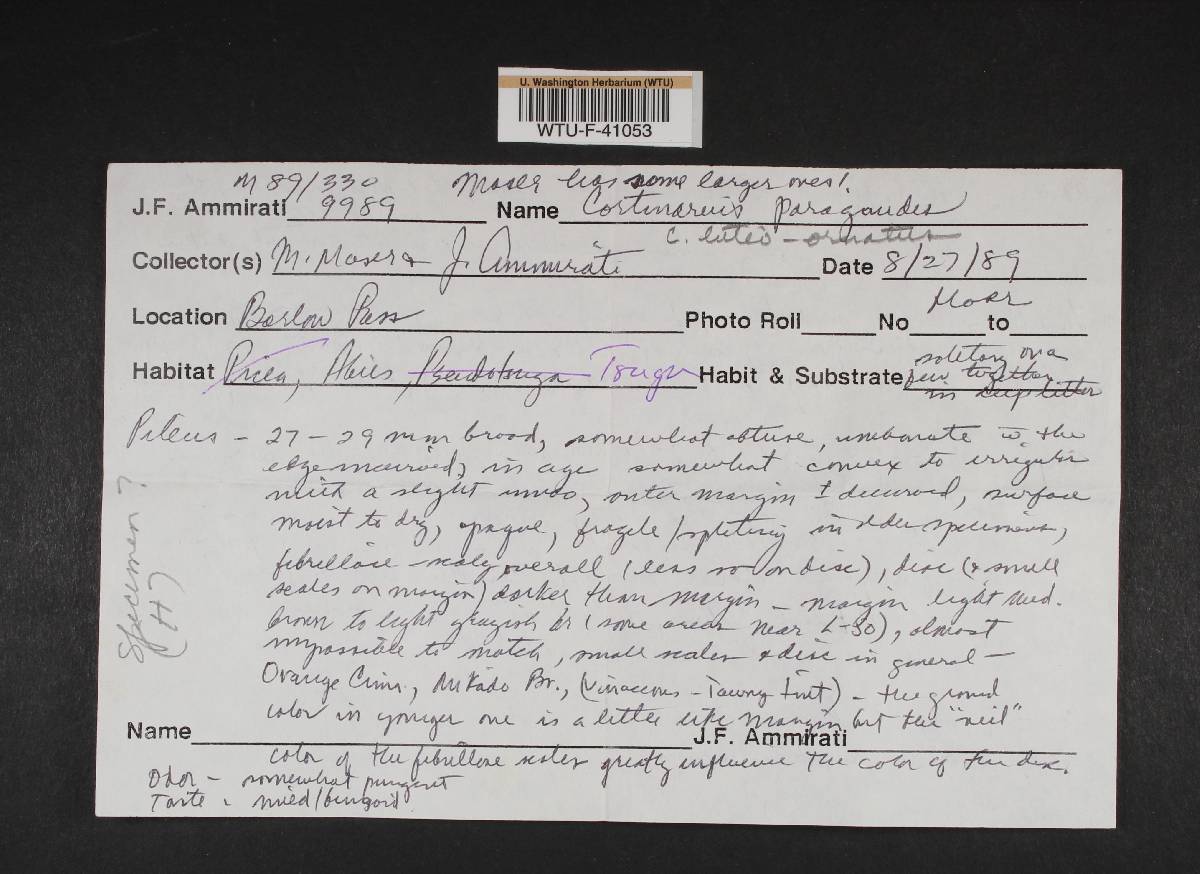 U. Washington Herbarium (WTU)
WTU-F-41053
M 89/330 Moser has some larger ones!
J.F. Ammirati 9989 Name Cortinarius paragaudis
C. luteo-ornatus
Collector(s) M. Moser & J. Ammirati Date 8/27/89
Location Barlow Pass Photo Roll No Moser to
Habitat Picea, Abies, Pseudotsuga Tsuga Habit & Substrate solitary or a
few together
in deep litter
Pileus - 27-29 mm broad, somewhat obtuse, umbonate w. the
edge incurved, in age somewhat convex to irregular
with a slight umbo, outer margin ± decurved, surface
moist to dry, opaque, fragile/splitting in older specimens,
fibrillose-scaly overall (less so on disc), disc (& small
scales on margin) darker than margin - margin light med.
brown to light grayish br (some areas near L-30), almost
impossible to match, small scales & disc in general -
Orange Cinn., Mikado Br., (Vinaceous-Tawny tint) - the ground
color in younger one is a little like margin but the "veil"
Name J.F. Ammirati
color of the fibrillose scales greatly influence the color of the disc.
Odor - somewhat pungent
Taste - mild/fungoid
Specimen ?
(H7)